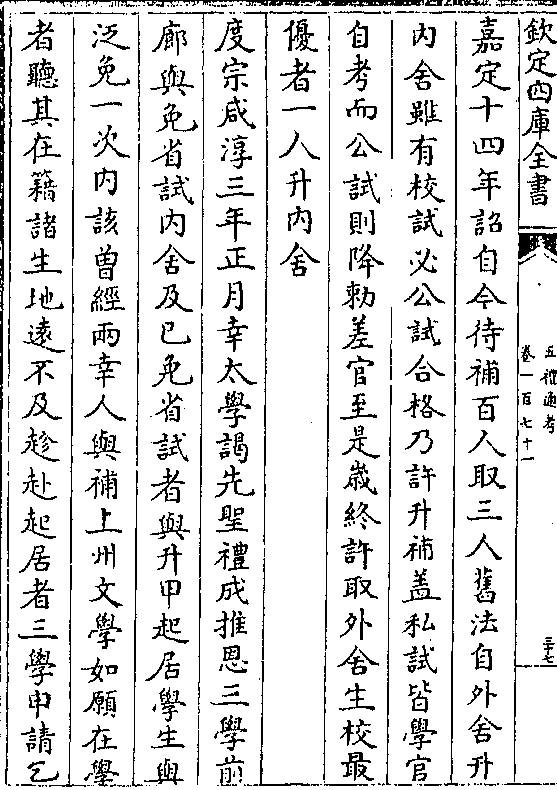 欽定四庫全書
五禮通考
卷一百七十一
三七
嘉定十四年詔自今待補百人取三人舊法自外舍升
內舍雖有校試必公試合格乃許升補盖私試皆學官
自考而公試則降勅差官至是歲終許取外舍生校最
優者一人升內舍
度宗咸淳三年正月幸太學謁先聖禮成推恩三學前
廊與免省試內舍及已免省試者與升甲起居學生與
泛免一次內該曽經兩幸人與補上州文學如願在學
者聽其在籍諸生地遠不及趁赴起居者三學申請乞